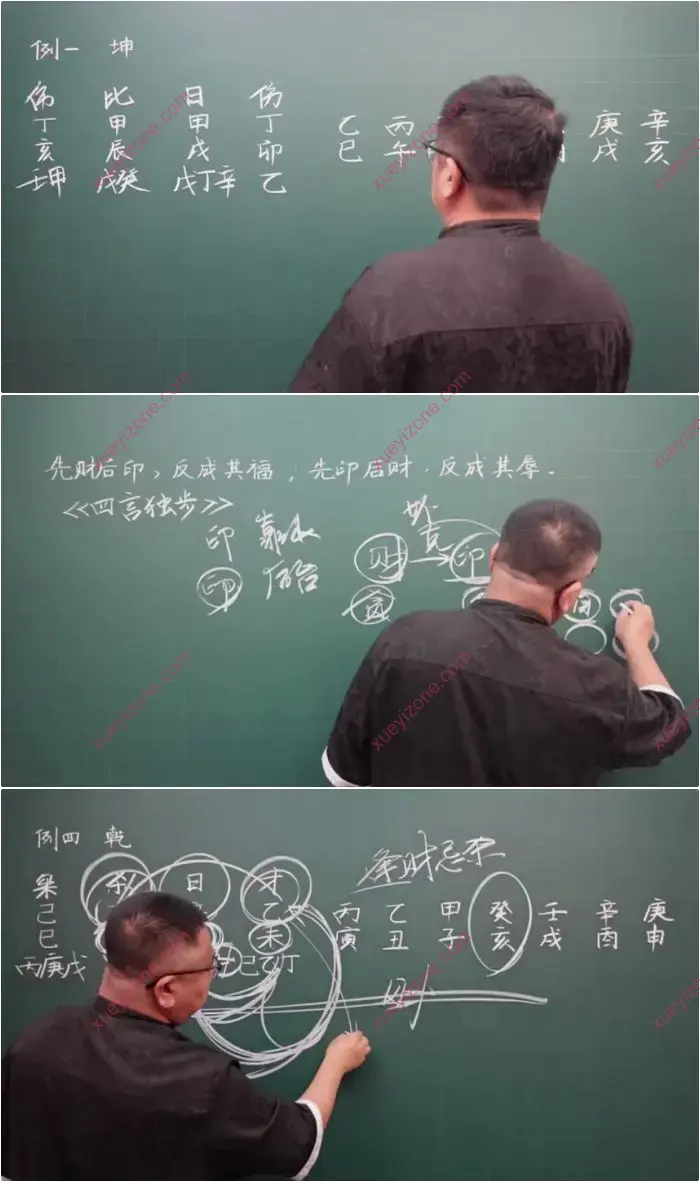 例一 坤
伤 比 日 伤
丁 甲 甲 丁 乙 丙 庚 辛
亥 辰 戌 卯 巳 午 戌 亥
壬甲 戊癸 戊丁辛 乙
先财后印，反成其福，先印后财，反成其辱。
《四言独步》
印
财 印
印
例四 乾
杀 日 才 逢财忌杀
己 乙 丙 乙 甲 癸 壬 辛 庚
巳 未 寅 丑 子 亥 戌 酉 申
丙庚戊 己乙丁
xueyizone.com
xueyizone.com
xueyizone.com
xueyizone.com
xueyizone.com
xueyizone.com
xueyizone.com
xueyizone.com
xueyizone.com